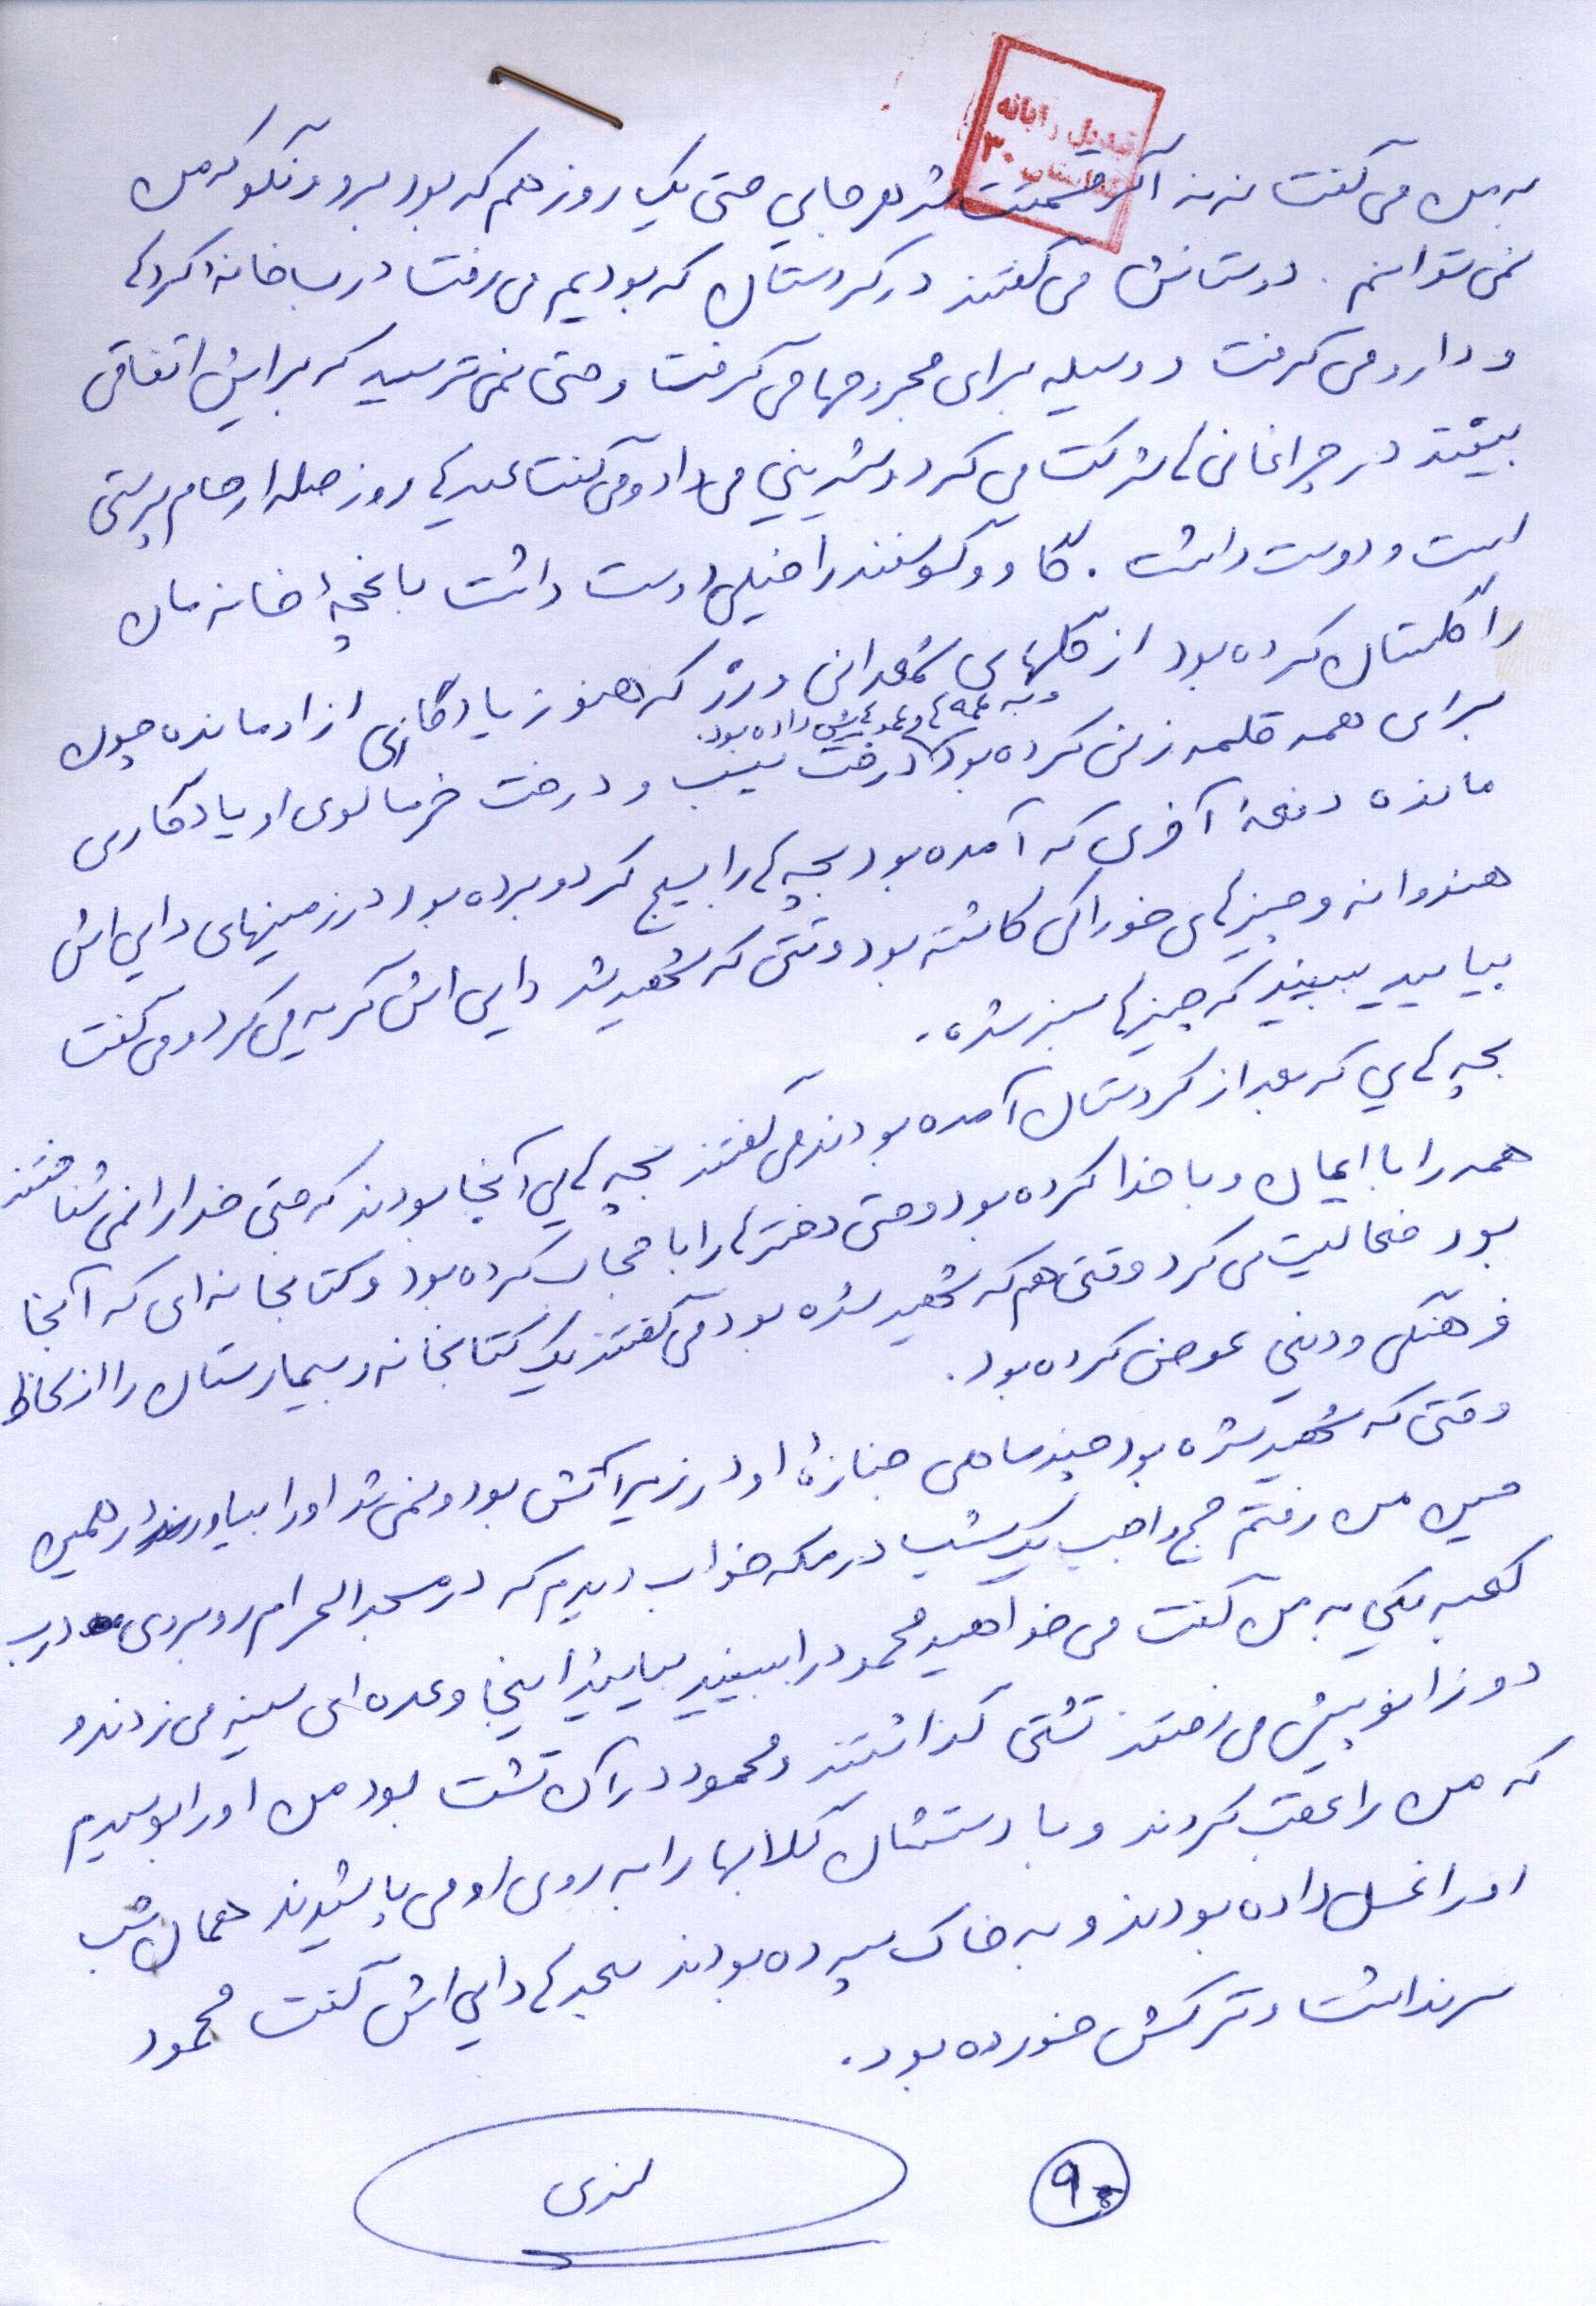 تبدیل رایانه
۳۰
به من می گفت ننه اگر قسمتت شد هر جایی حتی یک روز هم که بود برو و نگو که من
نمی توانم. دوستانش می گفتند در کردستان که بودیم می رفت درب خانه کردها
و دارو می گرفت و وسیله برای مجروحها می گرفت و حتی نمی ترسید که برایش اتفاقی
بیفتد در چراغانی ها شرکت می کرد و شیرینی می داد و می گفت عیدها روز صله ارحام پرستی
است و دوست داشت. گاو و گوسفند را خیلی دوست داشت باغچهٔ خانه مان
را گلستان کرده بود از گلهای شمعدانی و رز که هنوز یادگاری از او مانده چون
برای همه قلمه زنی کرده بود و به عمه ها و عموهایش داده بود. درخت سیب و درخت خرمالوی او یادگاری
مانده دفعهٔ آخری که آمده بود بچه ها را بسیج کرد و برده بود در زمینهای دایی اش
هندوانه و چیزهای خوراکی کاشته بود وقتی که شهید شد دایی اش گریه می کرد و می گفت
بیایید ببینید که چیزها سبز شده.
بچه هایی که بعد از کردستان آمده بودند می گفتند بچه هایی آنجا بودند که حتی خدا را نمی شناختند
همه را با ایمان و با خدا کرده بود و حتی دخترها را با حجاب کرده بود و کتابخانه ای که آنجا
بود فعالیت می کرد وقتی هم که شهید شده بود می گفتند یک کتابخانه و بیمارستان را از لحاظ
فرهنگی و دینی عوض کرده بود.
وقتی که شهید شده بود چند ماهی جنازهٔ او در زیر آتش بود و نمی شد او را بیاورند در همین
حین من رفتم حج واجب یک شب در مکه خواب دیدم که در مسجد الحرام روبروی درب
کعبه یکی به من گفت می خواهید محمود را ببینید بیایید اینجا و عده ای سینه می زدند و
دو زانو پیش می رفتند تشتی گذاشتند و محمود در آن تشت بود من او را بوسیدم
که من را عقب کردند و با دستشان گلابها را به روی او می پاشیدند همان شب
او را غسل داده بودند و به خاک سپرده بودند بچه های دایی اش گفت محمود
سر نداشت و ترکش خورده بود.
۹